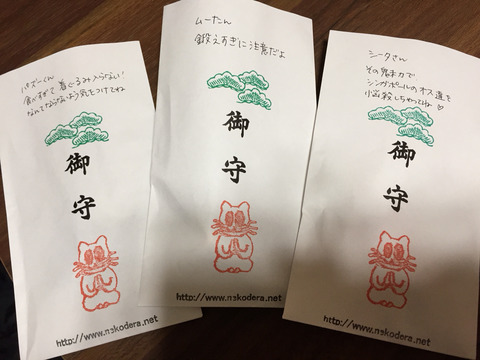 パズーくん
食べすぎて着ぐるみ入らない!
なんてならないよう気をつけてね
御
守
http://www.nekodera.net
ムーたん
鍛えすぎに注意だよ
御
守
http://www.nekodera.net
シータさん
その魅力で
シンガポールのオス達を
悩殺しちゃってね♡
御
守
http://www.nekodera.net